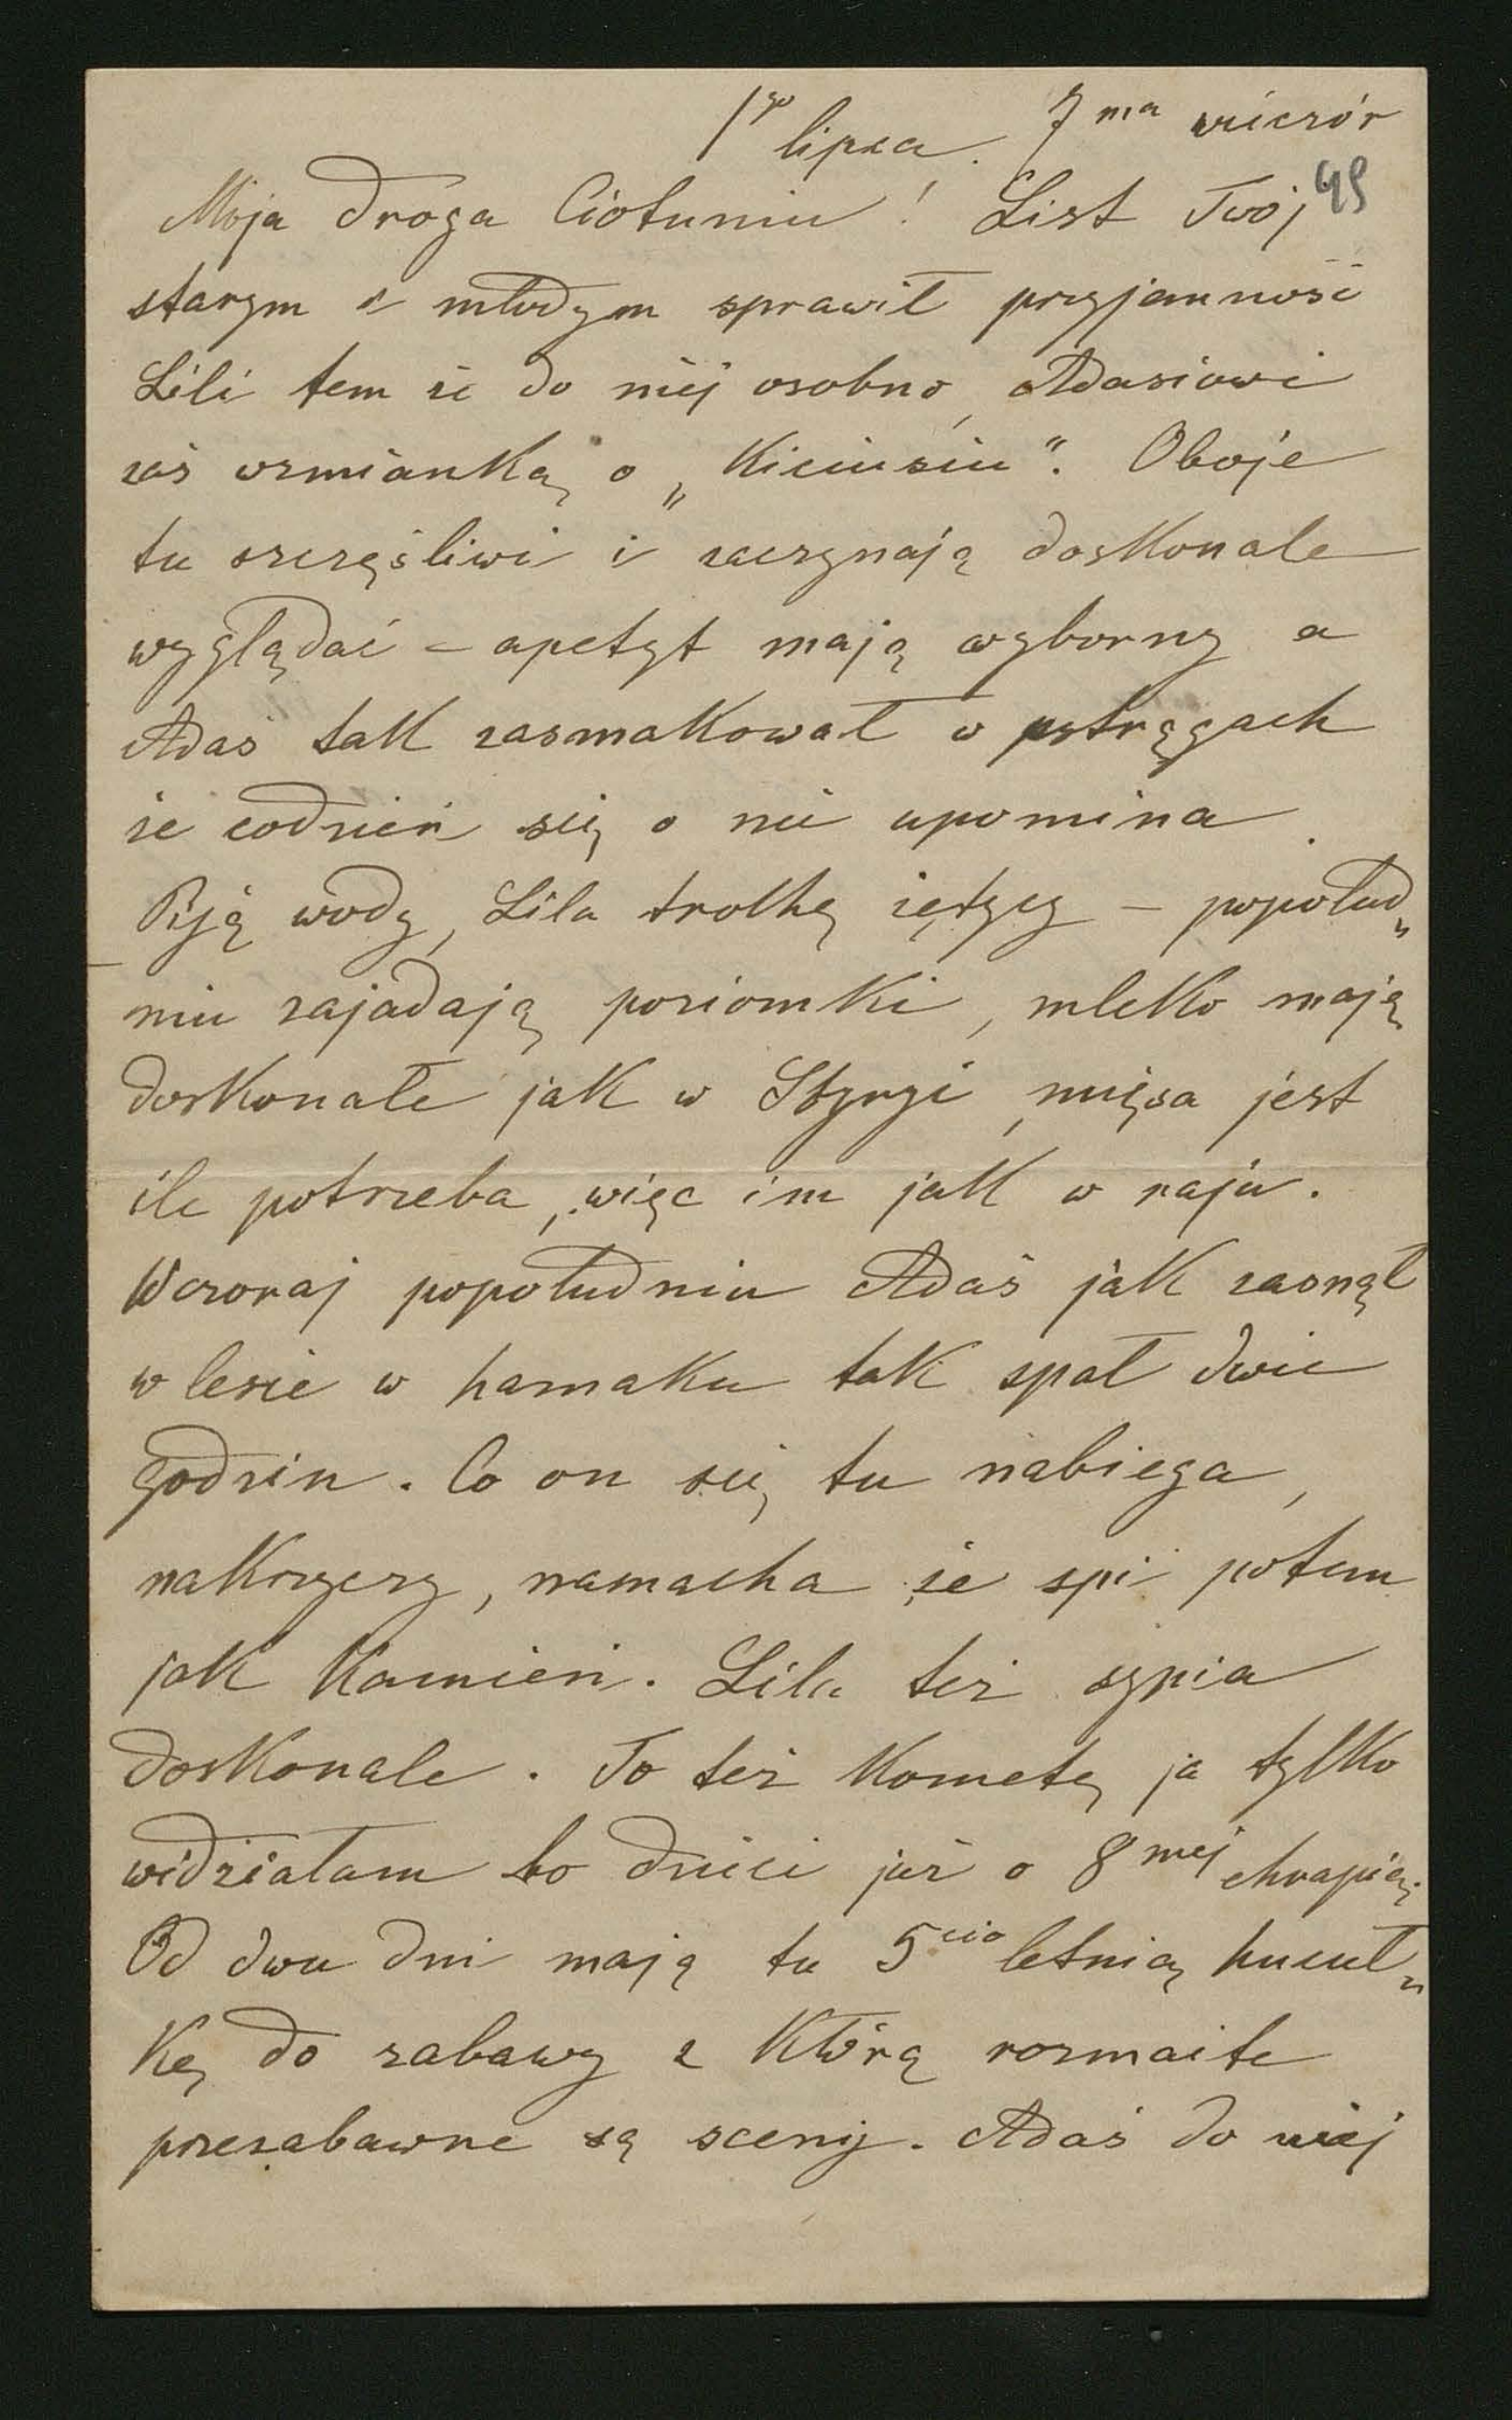 1go lipca. 7ma wieczór
49
Moja droga Ciotuniu! List Twój
starym i młodym sprawił przyjemność
Lili tem że do niej osobno, Adasiowi
zaś wzmianką o „Kiciusiu“. Oboje
tu szczęśliwi i zaczynają doskonale
wyglądać – apetyt mają wyborny a
Adaś tak zasmakował w pstrągach
że codzień się o nie upomina.
Piją wody, Lila trolkę żętycy – popołud„
niu zajadają poziomki, mleko mają
doskonałe jak w Styryi, mięsa jest
ile potrzeba, więc im jak w raju.
Wczoraj popołudniu Adaś jak zasnął
w lesie w hamaku tak spał dwie
godzin. Co on się tu nabiega,
nakrzyczy, namacha że spi potem
jak kamień. Lila też sypia
doskonale. To też kometę ja tylko
widziałam bo dzieci już o 8mej chrapią.
Od dwu dni mają tu 5cio letnią hucuł„
kę do zabawy z którą rozmaite
przezabawne są sceny. Adaś do niej